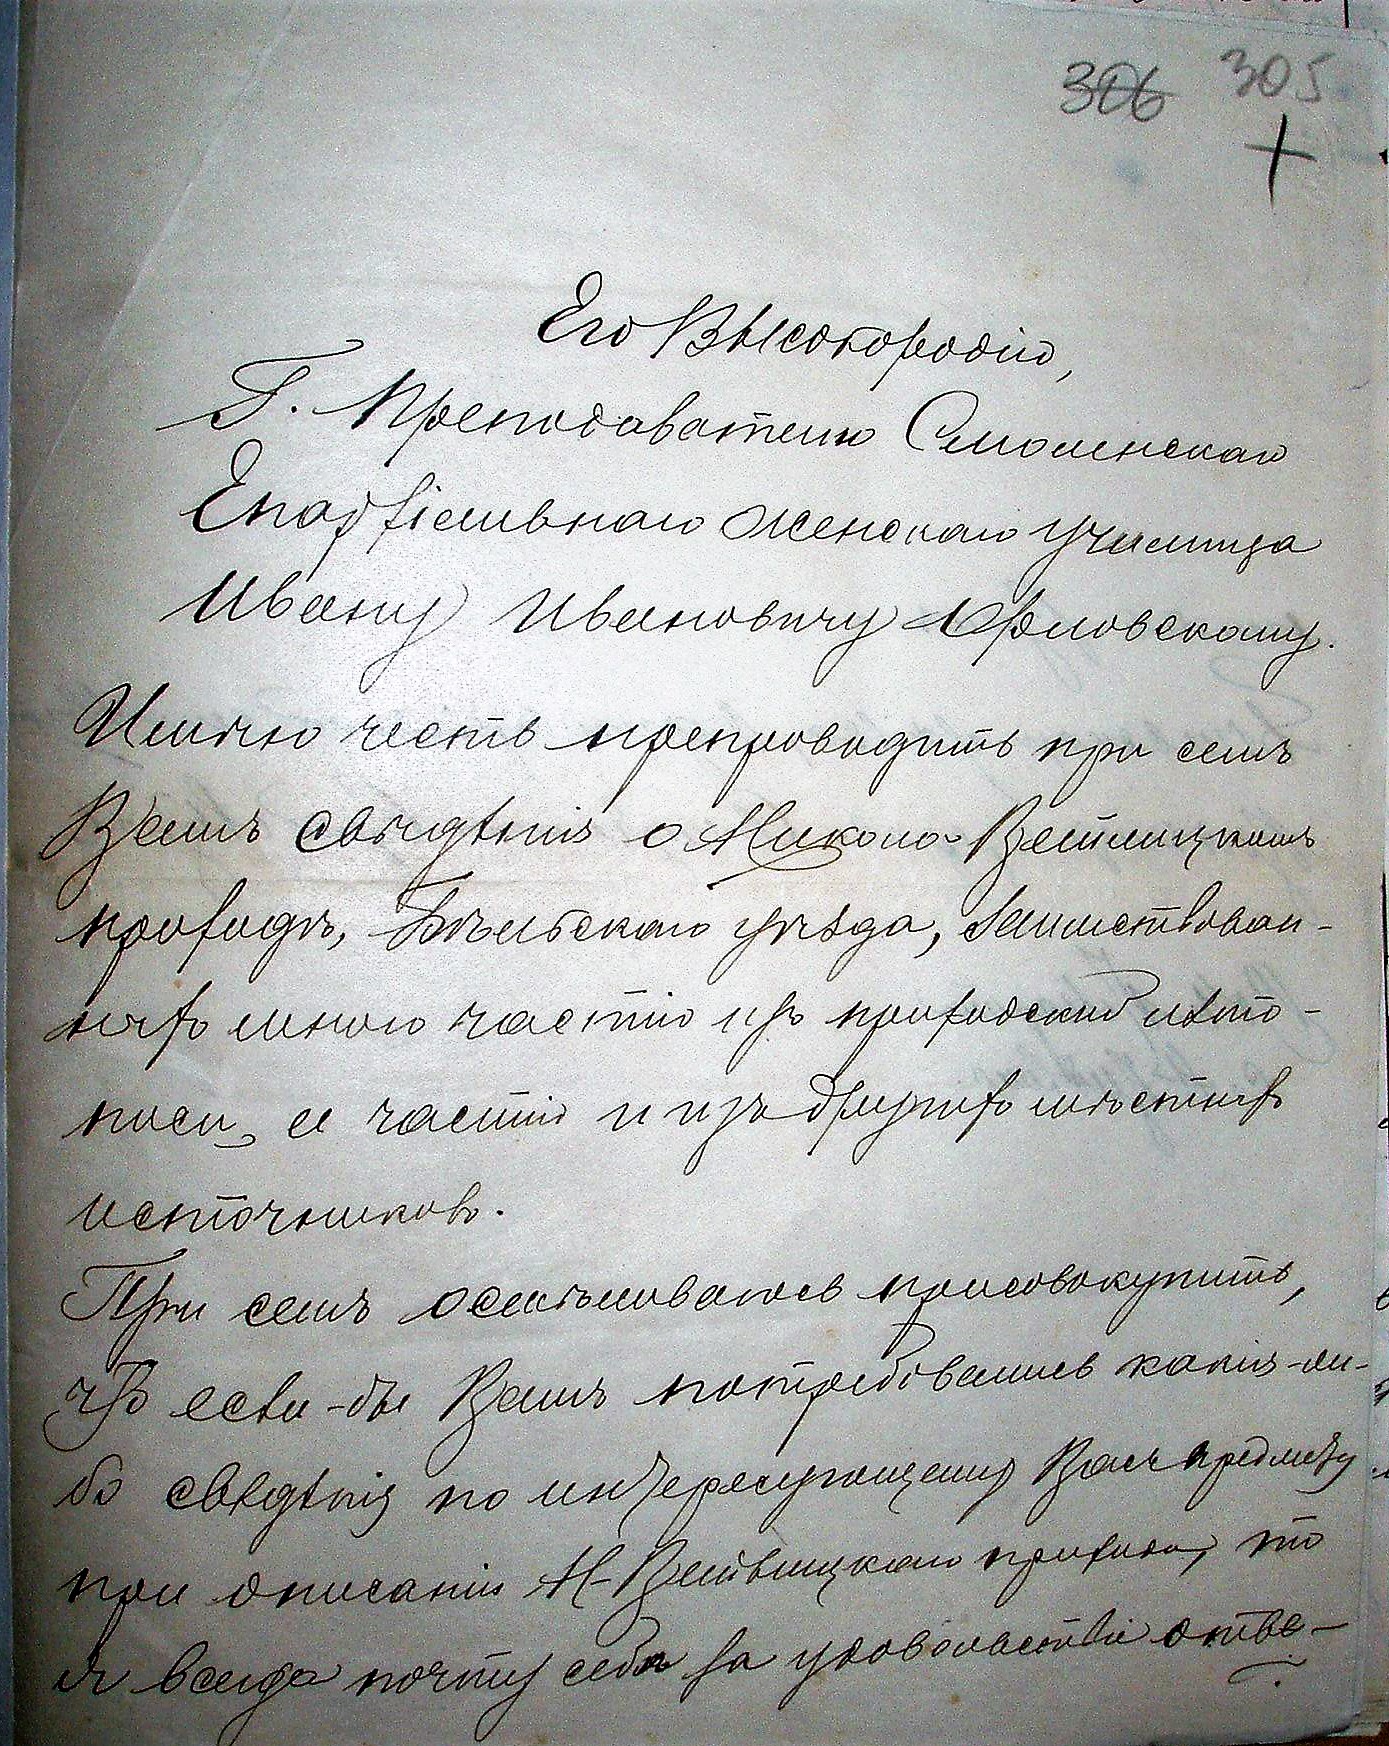 306 305
Его Высокородію,
Г. Преподавателю Смоленскаго
Епархіальнаго женскаго училища
Ивану Ивановичу Орловскому.
Имѣю честь препроводить при семъ
Вамъ свѣдѣнія о Николо-Ветлицкомъ
приходѣ, Бѣльскаго уѣзда, заимствован-
ныя мною частію изъ приходской лѣто-
писи, а частію и изъ другихъ мѣстныхъ
источниковъ.
При семъ осмѣливаюсь присовокупить,
что если-бы Вамъ потребовались какія-ли-
бо свѣдѣнія по интересующему Васъ предмету
при описаніи Н-Ветлицкаго прихода, то
я всегда почту себѣ за удовольствіе отвѣ-